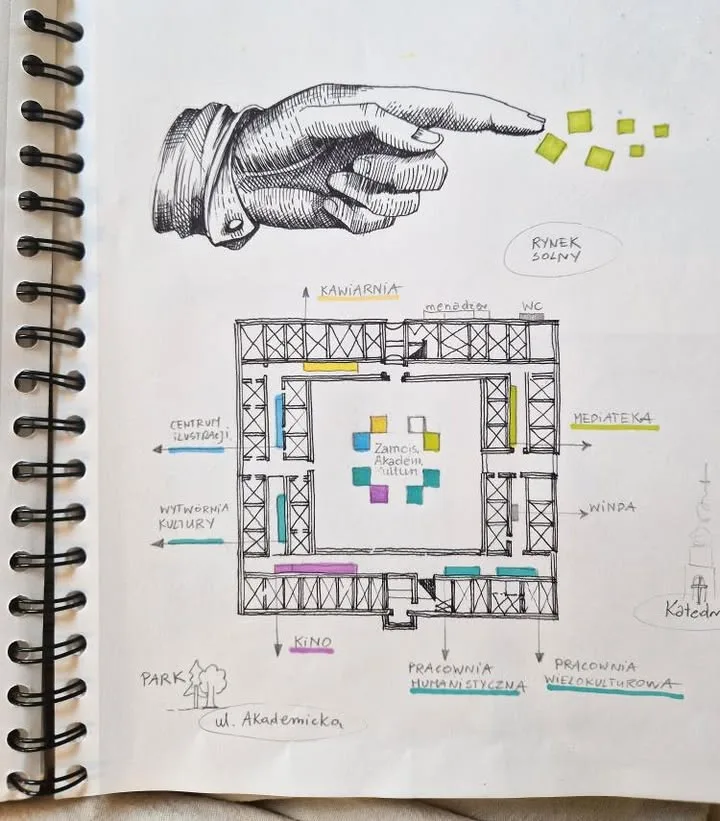 RYNEK
SOLNY
KAWIARNIA
menadżer
WC
CENTRUM
ILUSTRACJI
MEDIATEKA
WYTWÓRNIA
KULTURY
WINDA
KINO
PRACOWNIA
HUMANISTYCZNA
PRACOWNIA
WIELOKULTUROWA
PARK
ul. Akademicka